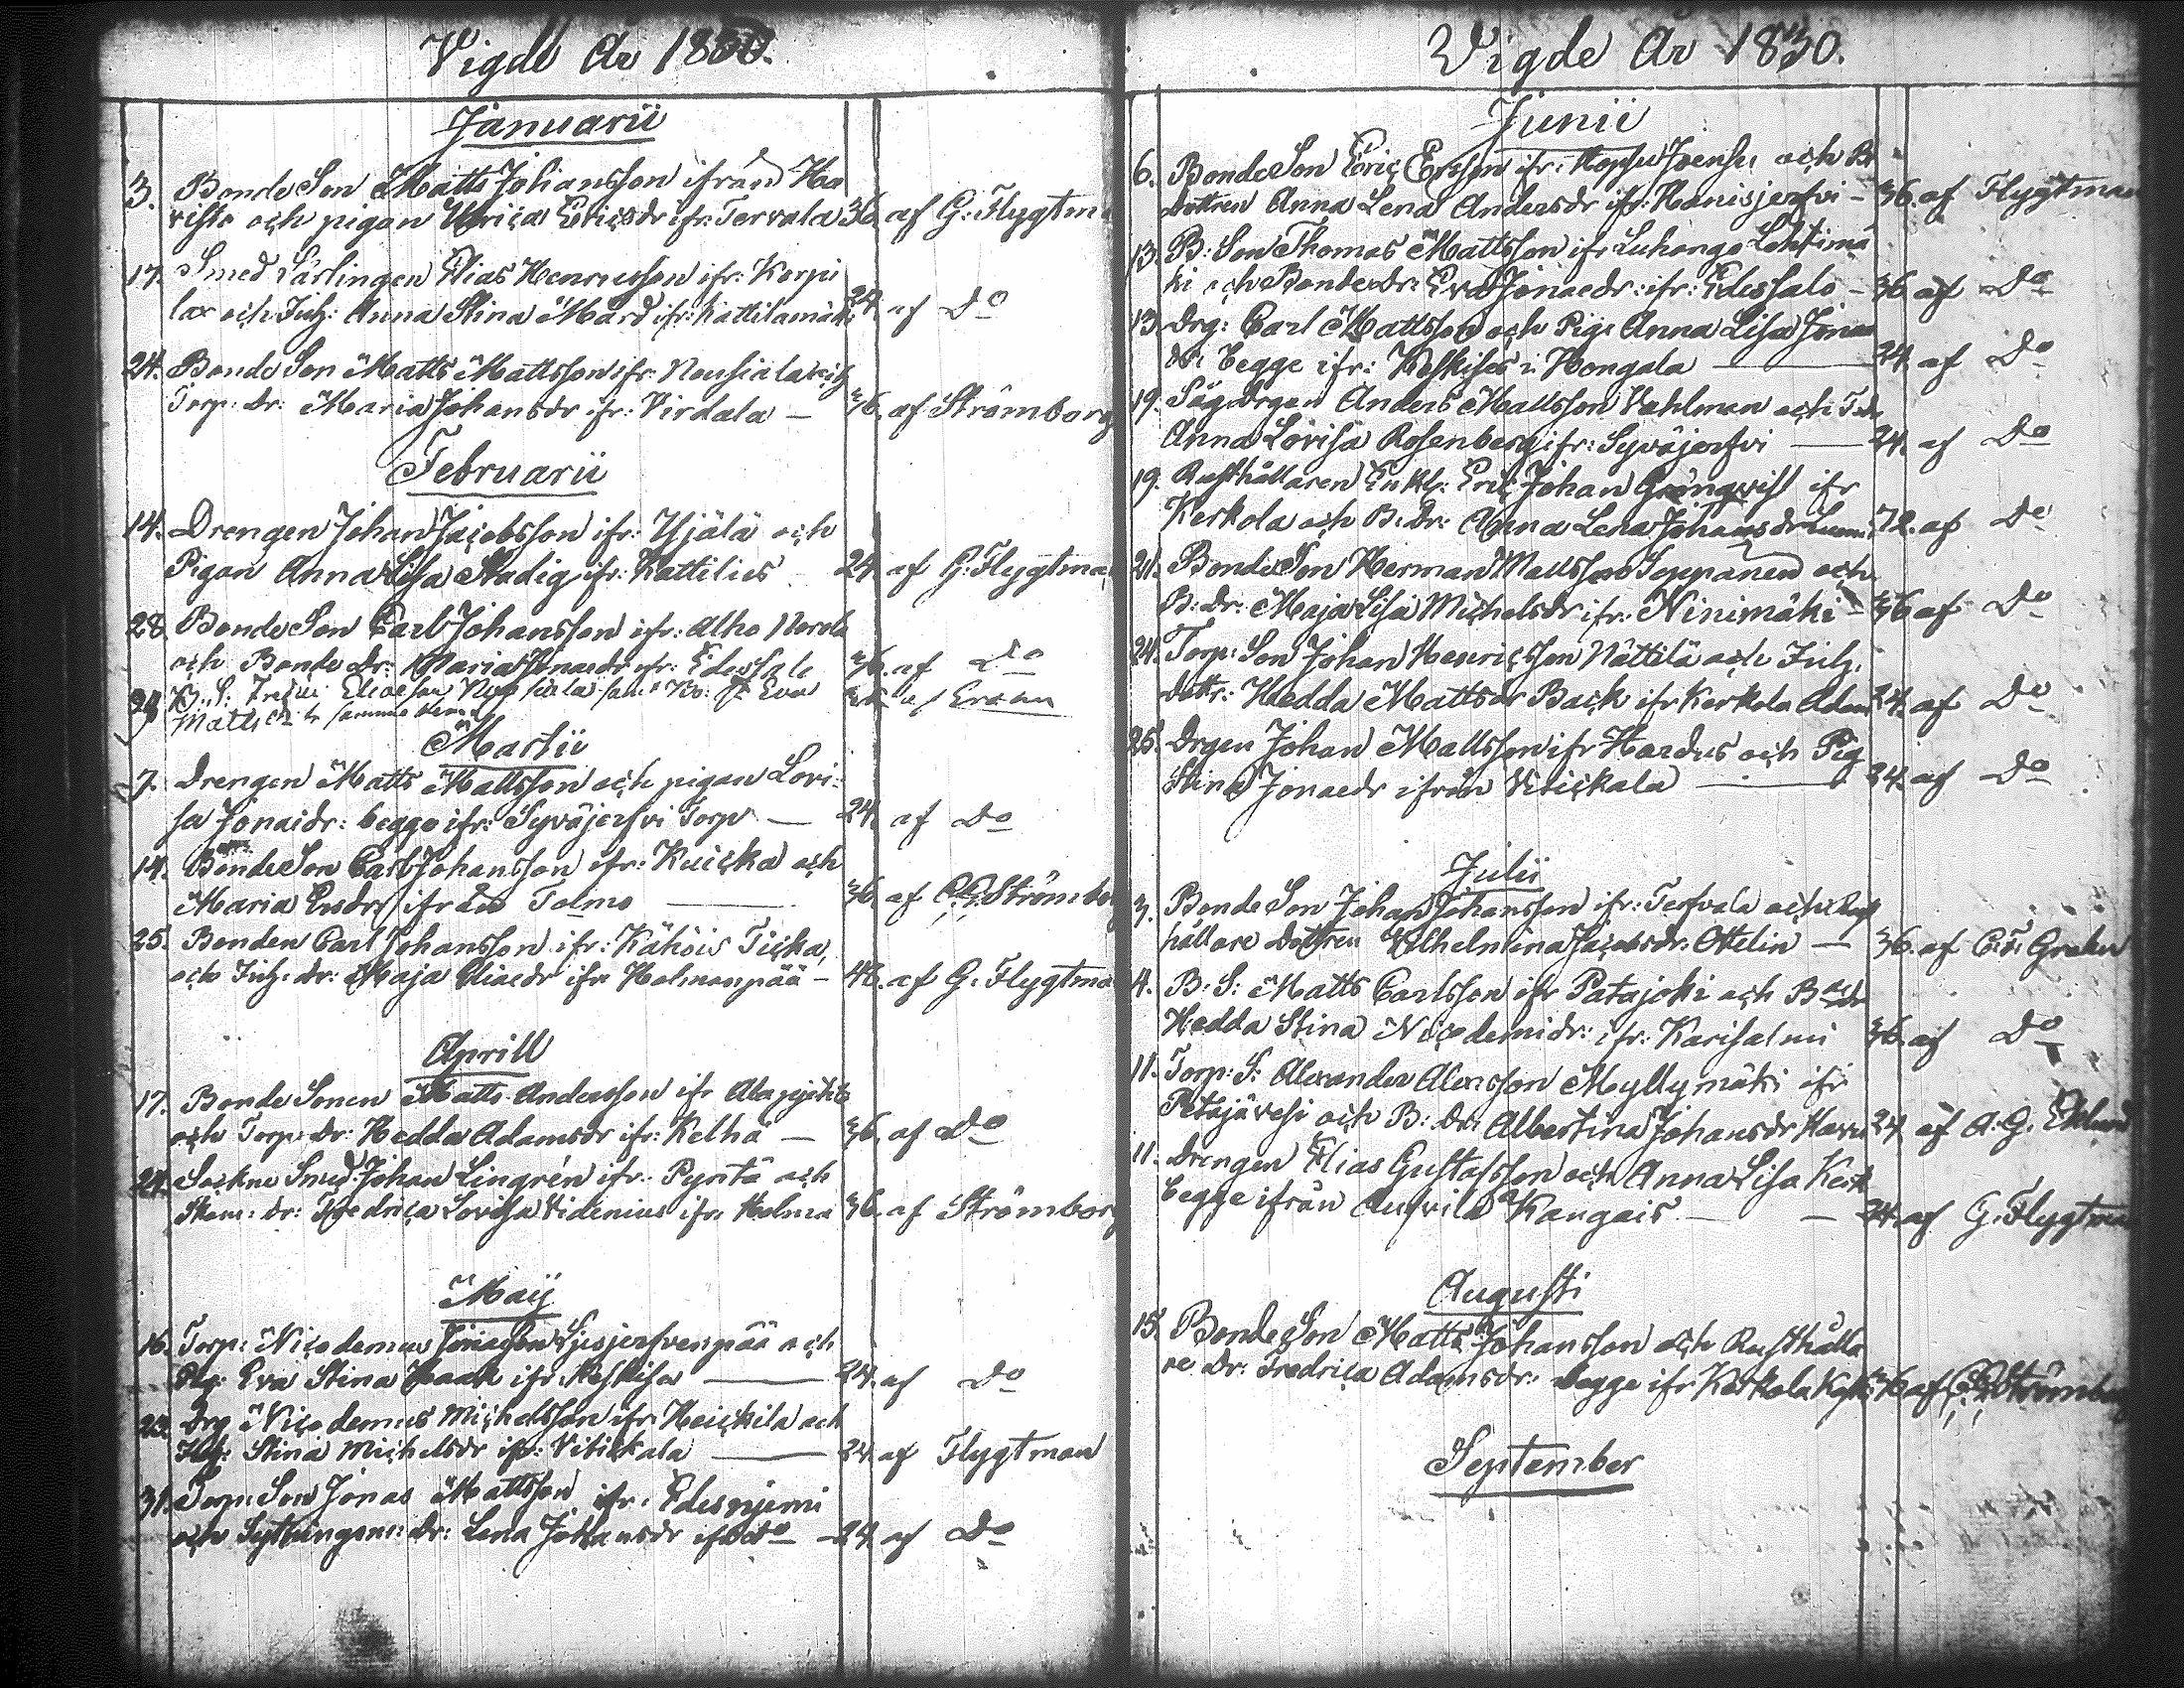 Vigde År 1830.
Januarii
3. Bonde Son Matts Johansson ifrån Ha
risto och pigan Ulrica Ericsdr ifr: Tervala 36. af G: Flygtm
17. Smed Lärlingen Elias Henricsson ifr: Korpi
lax och Inh: Anna Stina Mård ifr: Kattilamäki 24. af Do
24. Bonde Son Matts Mattsson ifr: Nousiala och
Torp: Dr: Maria Johansdr ifr: Virdala — 36. af Strömborg
Februarii
14. Drengen Johan Jacobsson ifr: Hjälä och
Pigan Anna Lisa Stadig ifr: Kattilus 24. af G: Flygtma
28. Bonde Son Carl Johansson ifr: Alho Norola
och Bonde Dr: Maria Jonaedr ifr: Edessalo 36. af Do
28 B: S: Eliaesson samt Eva
Matts samma
Martii
7. Drengen Matts Mattsson och pigan Lovi-
sa Jonaidr: begge ifr: Syväjerfvi Torp — 24. af Do
14. Bonde Son Carl Johansson ifr: Kuicka och
Maria Ersdr ifrån Tolmo — 36. af Strömborg
25. Bonden Carl Johansson ifr: Kähöis Ticka,
och Inh: dr: Maja Eliaedr ifr: Holmanpää — 48. af G: Flygtma
Aprill
17. Bonde Sonen Matts Andersson ifr
och Torp: Dr: Hedda Adamsdr ifr: Kelhä — 36. af Do
24. Sockne Smed: Johan Lingrén ifr: Pyntä och
dr: Fredrica Lovisa Videnius ifr: Holma 36. af Strömborg
Maij
16. Torp: Nicodemus Jonaesson Syejerfvenpää och
Pig: Eva Stina Haak ifr: Keskisa — 24. af Do
23. Drg Nicodemus Michelsson ifr: Heickilä och
Stina Michelsdr ifr: Vitickala — 24. af Flygtman
31. Torp: Son Jonas Mattsson ifr: Edesnjemi
och Sythingsm: Dr: Lena Johansdr ifr do — 24. af Do
Vigde År 1830.
Junii
6. Bonde Son Eric Ersson ifr: Hopsu Joensu och B:
Dottren Anna Lena Andersdr ifr: Hanisjerfvi — 36. af Flygtman
13. B: Son Thomas Mattsson ifr Luhango Lehtimä
ki och Bondedr: Eva Jonaedr: ifr: Edessalo — 36 af Do
13. Drg: Carl Mattsson och Pig: Anna Lisa Jonae
dr: begge ifr: Keskises i Hongola — 24. af Do
19. Såg Drgen Anders Mattsson Vahlman och
Anna Lovisa Rosenberg ifr: Syväjerfvi — 24. af Do
19. Rusthållaren Enkl: Eric Johan Grönqvist ifr
Kerkola och B: Dr: Anna Lena Johansdr 72. af Do
21. Bonde Son Herman Mattsson Seppänen och
B: Dr: Maja Lisa Michelsdr ifr: Ninimäki — 36 af Do
24. Torp: Son Johan Henricsson Nättilä och Inh:
dottr: Hedda Mattsdr Back ifr Kerkola Adam 24. af Do
25. Drgen Johan Mattsson ifr Hardus och Pig
Stina Jonaedr ifrån Vitickala — 24. af Do
Julii
3. Bonde Son Johan Johansson ifr: Terfvala och Rust
hållare Dottren Vilhelmina Jacobsdr: Ottelin — 36. af C: F: Grahn
4. B: S: Matts Carlsson ifr Patajoki och Bondr
Hedda Stina Nicodemidr: ifr: Karisalmi 36. af Do
11. Torp: S: Alexander Alexsson Myllymäki ifr
Petäjävesi och B: Dr: Albertina Johansdr Haru 24 af A. G. Eklund
11. Drengen Elias Gustafsson och Anna Lisa
begge ifrån Aurila Kangais — 24. af G: Flygtman
Augusti
15. Bonde Son Matts Johansson och Rusthålla
re Dr: Fredrica Adamsdr: begge ifr Kerkola 36 af Strömborg
September